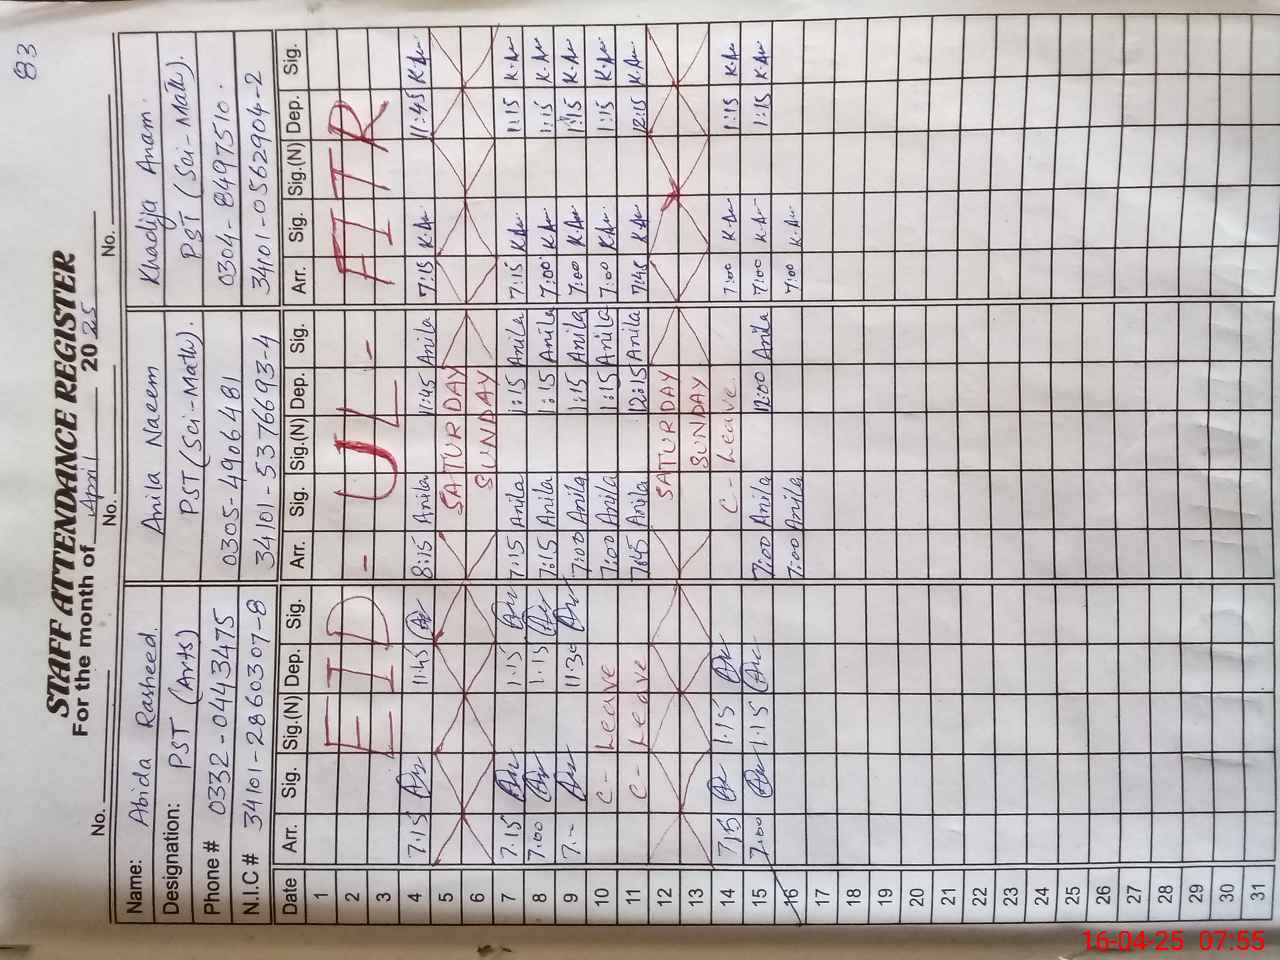 83
STAFF ATTENDANCE REGISTER
For the month of April 2025
No. No. No.
Name: Abida Rasheed. Anila Naeem Khadija Anam.
Designation: PST (Arts) PST (Sci-Math). PST (Sci-Math).
Phone # 0332-0443475 0305-4906481 0304-8497510.
N.I.C # 34101-2860307-8 34101-5376693-4 34101-0562904-2
Date Arr. Sig. Sig.(N) Dep. Sig. Arr. Sig. Sig.(N) Dep. Sig. Arr. Sig. Sig.(N) Dep. Sig.
1
2 EID - UL - FITR
3
4 7:15 11:45 8:15 Anila 11:45 Anila 7:15 K.An 11:45 K.An
5 SATURDAY
6 SUNDAY
7 7:15 1:15 7:15 Anila 1:15 Anila 7:15 K.An 1:15 K.An
8 7:00 1:15 7:15 Anila 1:15 Anila 7:00 K.An 1:15 K.An
9 7:- 11:30 7:00 Anila 1:15 Anila 7:00 K.An 1:15 K.An
10 C- Leave 7:00 Anila 1:15 Anila 7:00 K.An 1:15 K.An
11 C- Leave 7:45 Anila 12:15 Anila 7:45 K.An 12:15 K.An
12 SATURDAY
13 SUNDAY
14 7:15 1:15 C- Leave 7:00 K.An 1:15 K.An
15 7:00 1:15 7:00 Anila 12:00 Anila 7:00 K.An 1:15 K.An
16 7:00 Anila 7:00 K.An
17
18
19
20
21
22
23
24
25
26
27
28
29
30
31
16-04-25 07:55